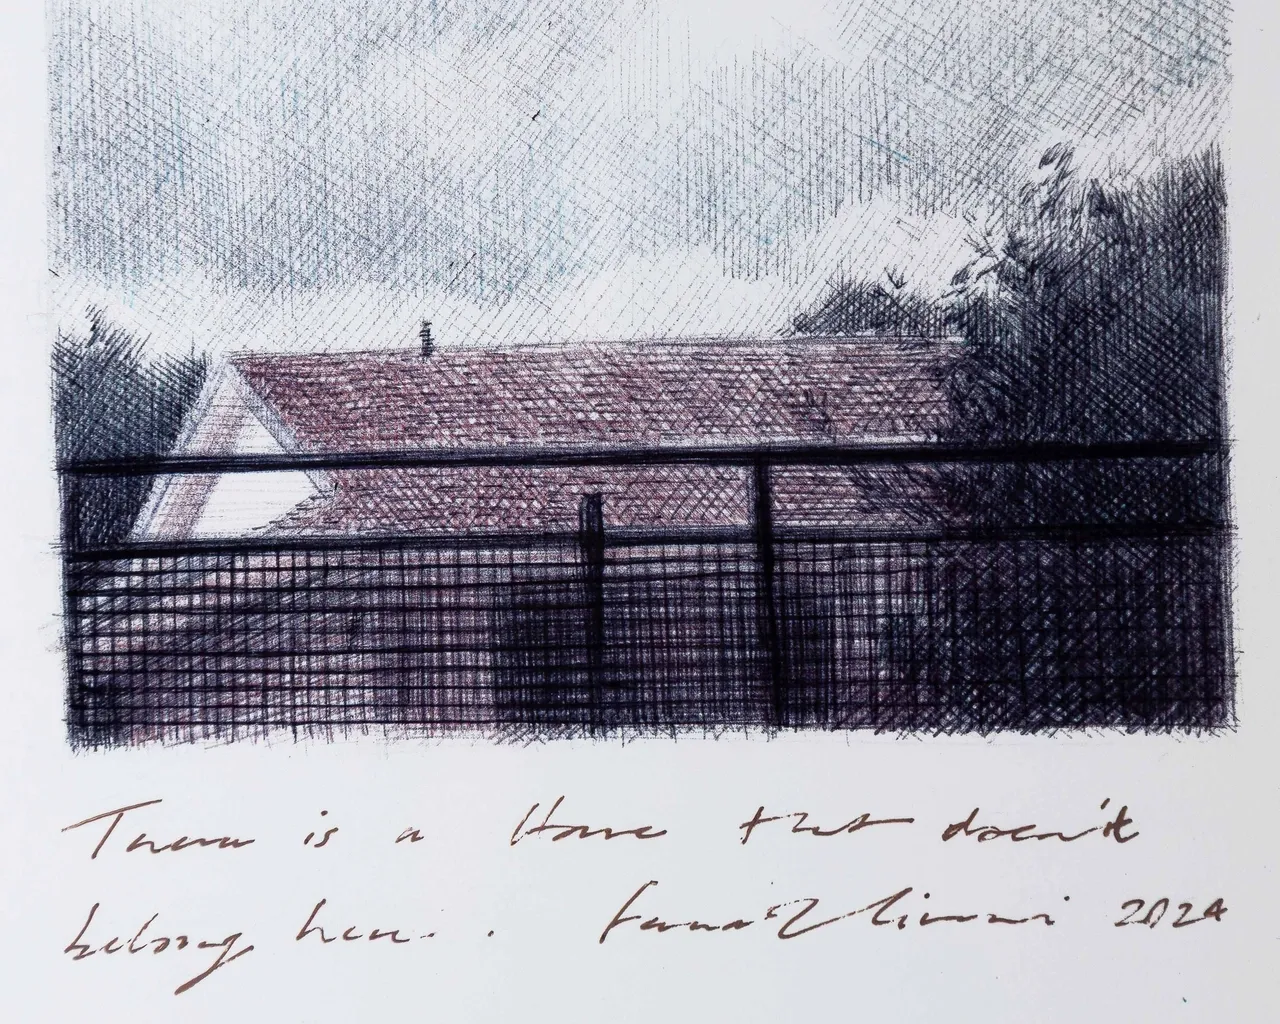 There is a House that doesn't
belong here. 2024